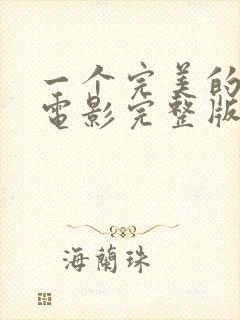 一个完美的
电影完整版
海蘭珠